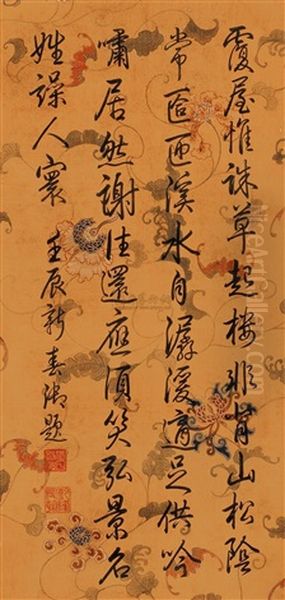 覆屋惟誅草起樓非背山松陰
常匼匝溪水自潺湲適足供吟
嘯居然謝往還應須笑弘景名
姓譟人寰 壬辰新春御題